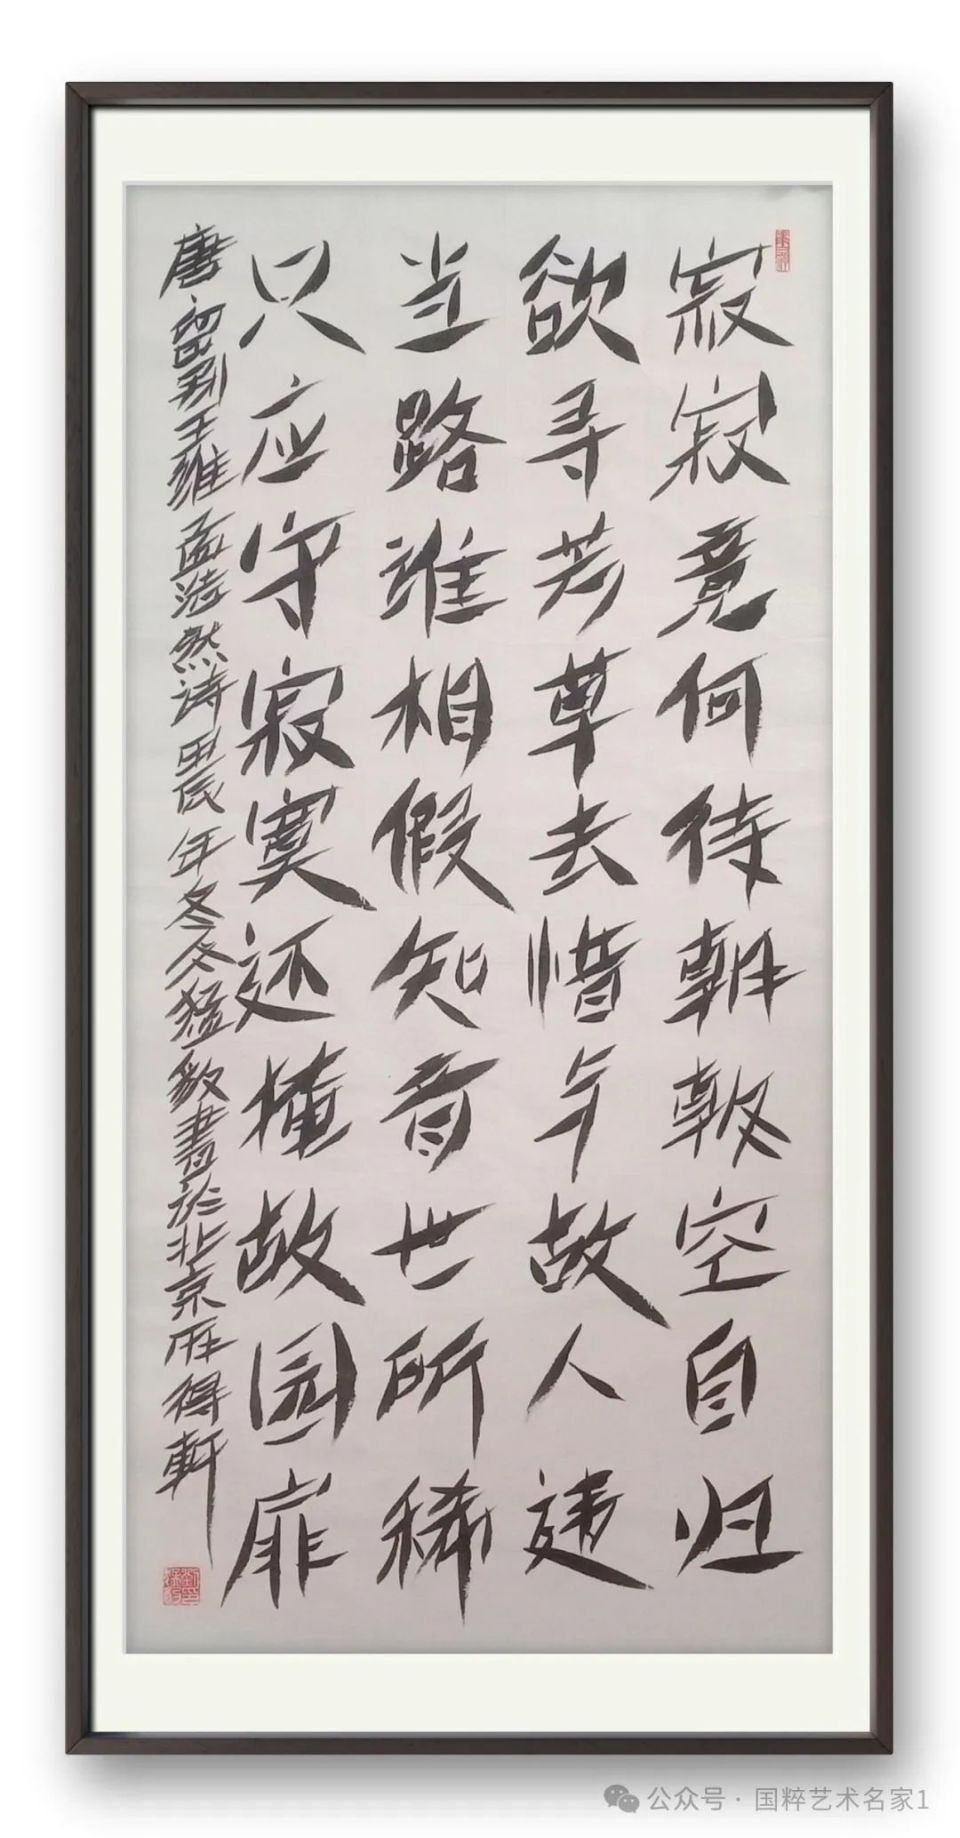 寂寂竟何待朝朝空自归
欲寻芳草去惜与故人违
当路谁相假知音世所稀
只应守寂寞还掩故园扉
唐留别王维孟浩然诗甲辰年冬猛毅書於北京得軒
公众号 · 国粹艺术名家1